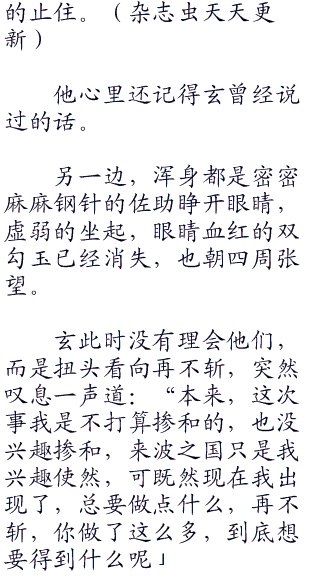 的止住。（杂志虫天天更
新）
他心里还记得玄曾经说
过的话。
另一边，浑身都是密密
麻麻钢针的佐助睁开眼睛，
虚弱的坐起，眼睛血红的双
勾玉已经消失，也朝四周张
望。
玄此时没有理会他们，
而是扭头看向再不斩，突然
叹息一声道：“本来，这次
事我是不打算掺和的，也没
兴趣掺和，来波之国只是我
兴趣使然，可既然现在我出
现了，总要做点什么，再不
斩，你做了这么多，到底想
要得到什么呢」